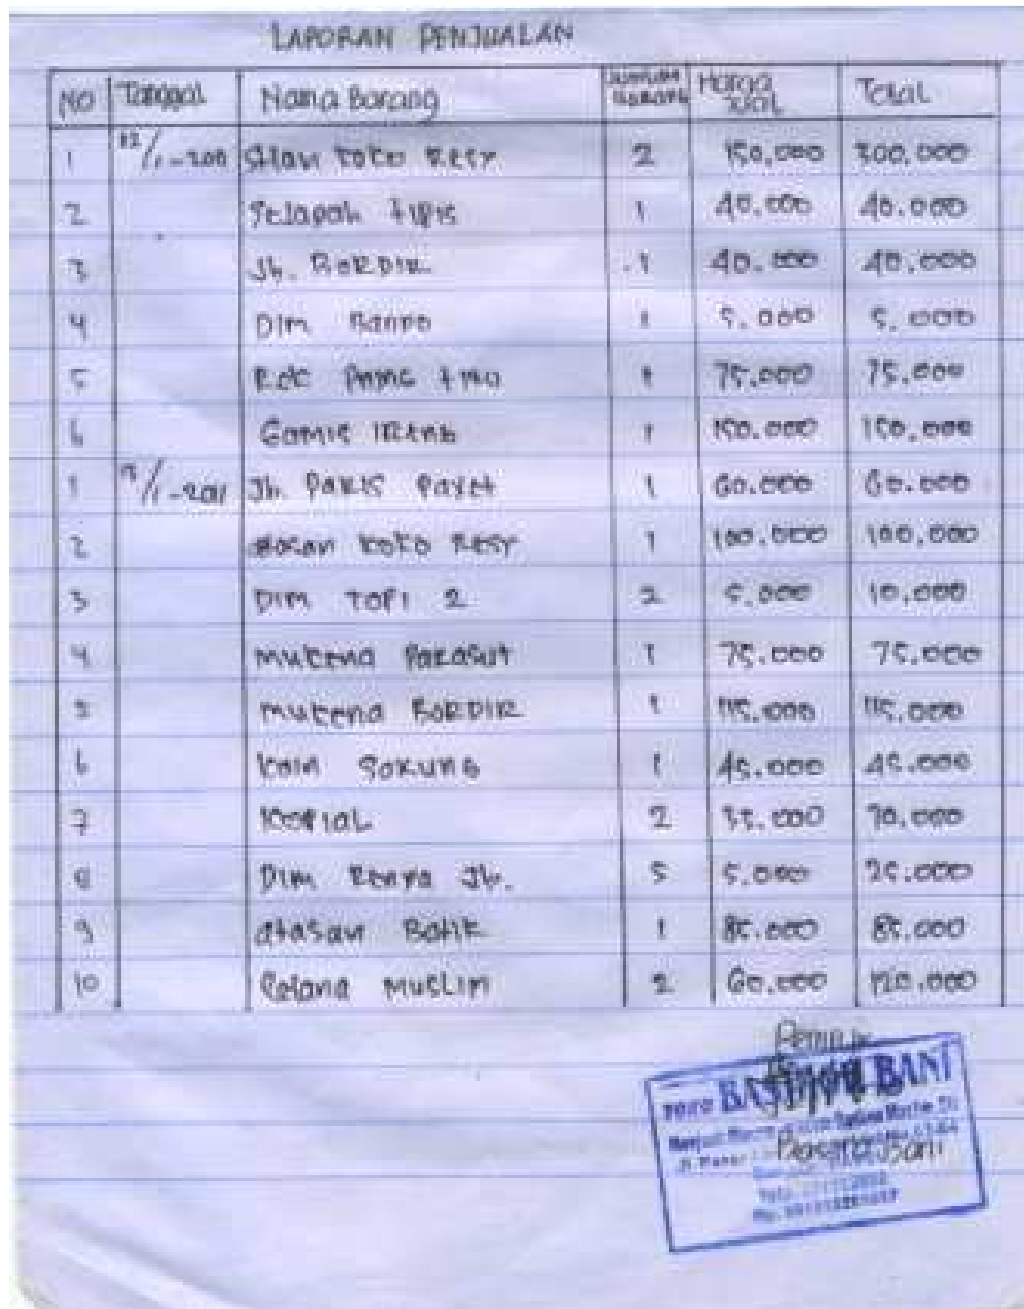 LAPORAN PENJUALAN
NO Tanggal Nama Barang Jumlah Barang Harga Jual Total
1 12/1-200 Stlan koko Resy 2 150.000 300.000
2 tipis 1 40.000 40.000
3 Jb. BORDIR 1 40.000 40.000
4 DIM 1 5.000 5.000
5 Rok 1 75.000 75.000
6 Gamis 1 150.000 150.000
1 /1-2011 Jb. PARIS Payet 1 60.000 60.000
2 atasan koko Resy 1 100.000 100.000
3 DIM TOPI 2 2 5.000 10.000
4 mukena Parasut 1 75.000 75.000
5 mukena BORDIR 1 115.000 115.000
6 kain SARUNG 1 45.000 45.000
7 KOPIAH 2 35.000 70.000
8 DIM Renda Jb. 5 5.000 25.000
9 atasan Batik 1 85.000 85.000
10 Celana MUSLIM 2 60.000 120.000
Pemilik
TOKO BASIMA BANI
Basima Bani